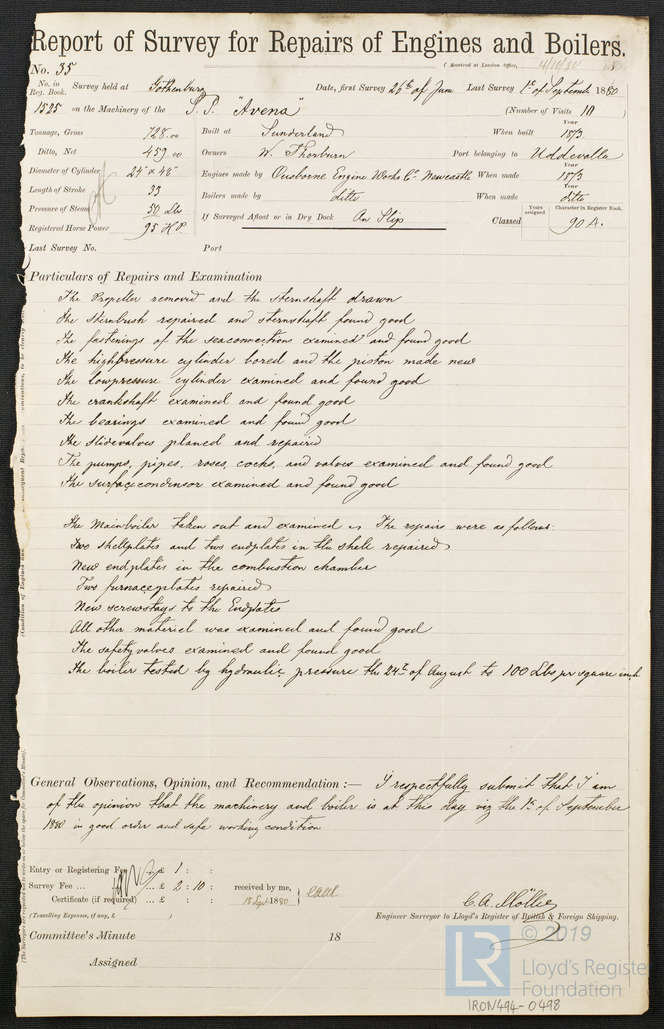 Report of Survey for Repairs of Engines and Boilers.
(Received at London Office, 4/10/80)
No. 35
No. in Reg. Book. Survey held at Gothenburg Date, first Survey 26th of June Last Survey 1st of September 1880
1525 on the Machinery of the S.S. "Avena" (Number of Visits 10)
Tonnage, Gross 728.00 Built at Sunderland When built Year 1873
Ditto, Net 459.00 Owners W. Thorburn Port belonging to Uddevalla
Diameter of Cylinder 24" × 48" Engines made by Ousborne Engine Works Co. Newcastle When made Year 1873
Length of Stroke 33
Pressure of Steam 50 Lbs Boilers made by ditto When made Year ditto
Registered Horse Power 95 HP If Surveyed Afloat or in Dry Dock On Slip Classed Years assigned Character in Register Book. 90 A.
Last Survey No. Port
Particulars of Repairs and Examination
The Propeller removed and the sternshaft drawn
The sternbush repaired and sternshaft found good
The fastenings of the seaconnections examined and found good
The highpressure cylinder bored and the piston made new
The lowpressure cylinder examined and found good
The crankshaft examined and found good
The bearings examined and found good
The slidevalves planed and repaired
The pumps, pipes, roses, cocks, and valves examined and found good
The surfacecondensor examined and found good
The Mainboiler taken out and examined The repairs were as follows:
Two shellplates and two endplates in the shell repaired
New endplates in the combustion chamber
Two furnaceplates repaired
New screwstays to the Endplates
All other materiel was examined and found good
The safetyvalves examined and found good
The boiler tested by hydraulic pressure the 24th of August to 100 Lbs pr square inch
General Observations, Opinion, and Recommendation :— I respectfully submit that I am
of the opinion that the machinery and boiler is at this day viz the 1st of September
1880 in good order and safe working condition
Entry or Registering Fee £ 1 : :
Survey Fee ... ... £ 2 : 10 : received by me,
Certificate (if required) ... £ : : 18 Sept 1880
(Travelling Expenses, if any, £ )
C. A. Möller
Engineer Surveyor to Lloyd's Register of British & Foreign Shipping.
Committee's Minute 18
Assigned
© 2019
LR
Lloyd's Register
Foundation
IRON494-0498